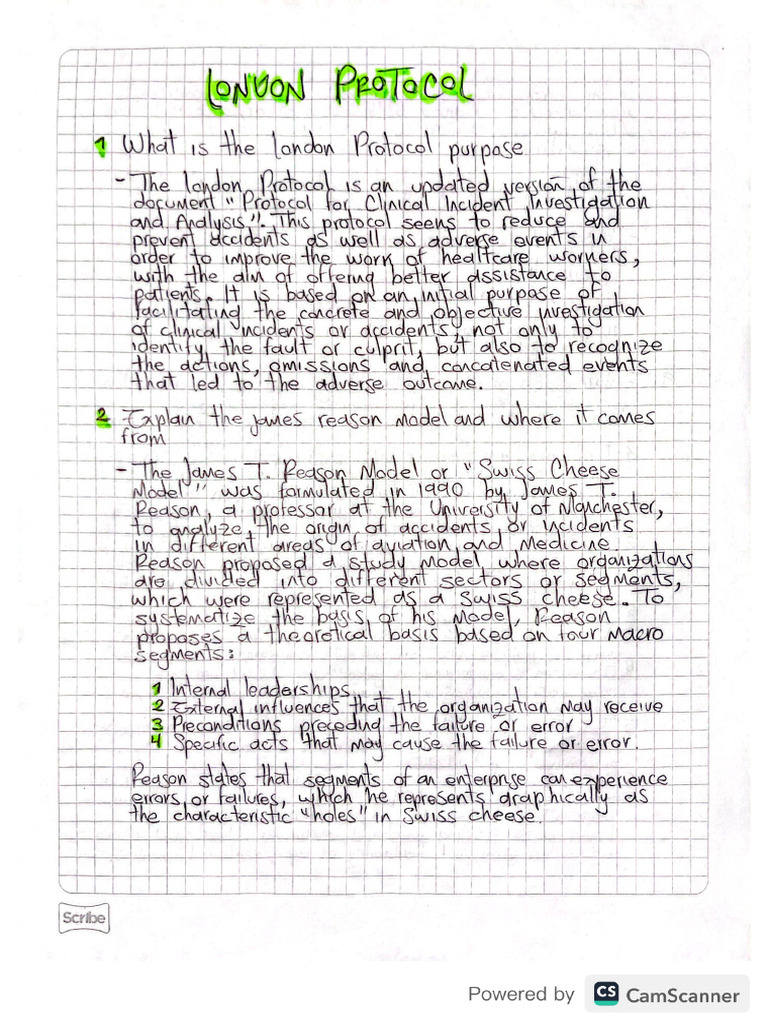 LONDON PROTOCOL
1 What is the london Protocol purpose
- The london Protocol is an updated version of the
document "Protocol for Clinical Incident Investigation
and Analysis". This protocol seens to reduce and
prevent accidents as well as adverse events in
order to improve the work of healtcare workers,
with the aim of offering better assistance to
patients. It is based on an initial purpose of
facilitating the concrete and objective investigation
of clinical incidents or accidents, not only to
identify the fault or culprit, but also to recognize
the actions, omissions and concatenated events
that led to the adverse outcome.
2 Explain the james reason model and where it comes
from
- The James T. Reason Model or "Swiss Cheese
Model" was formulated in 1990 by James T.
Reason, a professor at the University of Manchester,
to analyze the origin of accidents or incidents
in different areas of aviation and Medicine
Reason proposed a study model where organizations
are divided into different sectors or segments,
which were represented as a swiss cheese. To
systematize the basis of his model, Reason
proposes a theoretical basis based on four Macro
segments:
1 Internal leaderships
2 External influences that the organization may receive
3 Preconditions preceding the failure or error
4 Specific acts that may cause the failure or error.
Reason states that segments of an enterprise can experience
errors or failures, which he represents graphically as
the characteristic "holes" in Swiss cheese.
Scribe
Powered by CS CamScanner